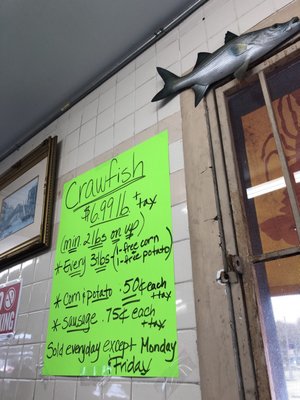 Crawfish
$6.99 lb + tax
(min 2 lbs on up)
* Every 3 lbs - (1-free corn
1-free potato)
* Corn & potato .50¢ each + tax
* Sausage .75¢ each + tax
Sold everyday except Monday
& Friday
KING